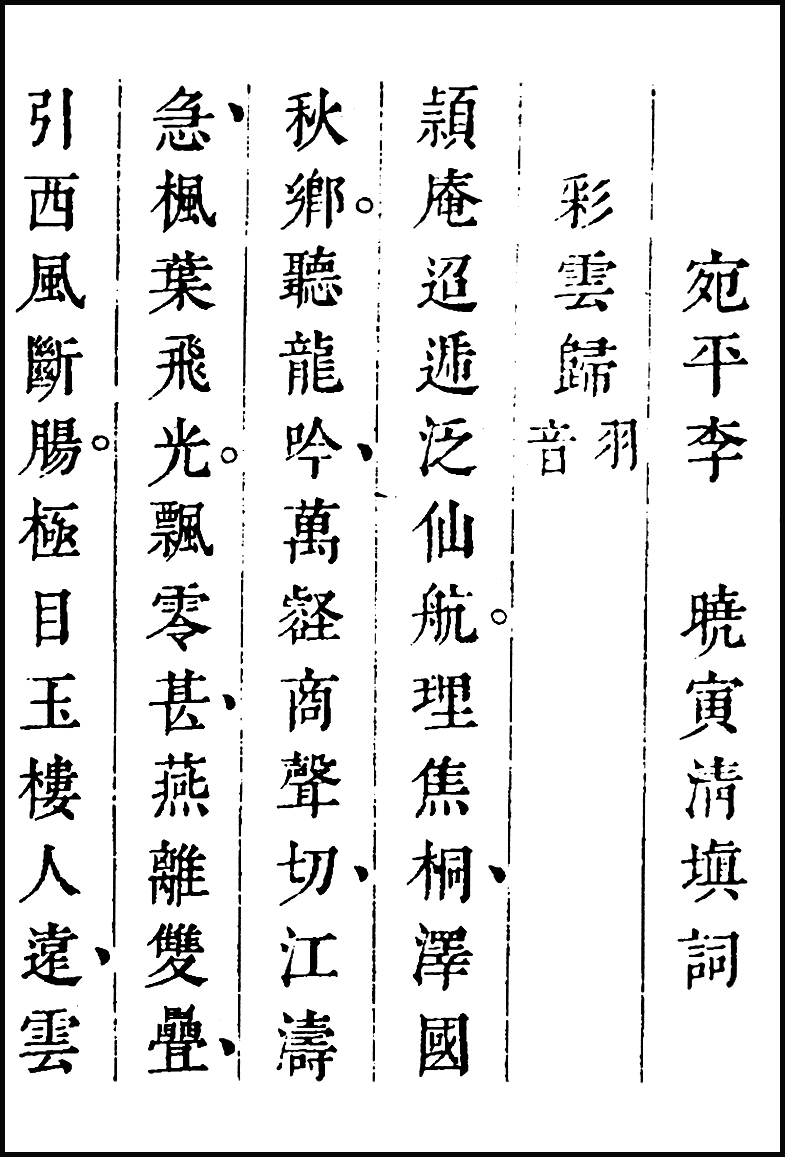 宛平李 曉寅淸塡詞
彩雲歸 羽音
潁庵迢遞泛仙航。理焦桐、澤國
秋鄉。聽龍吟、萬壑商聲切、江濤
急、楓葉飛光。飄零甚、燕離雙疊、
引西風斷腸。極目玉樓人遠、雲